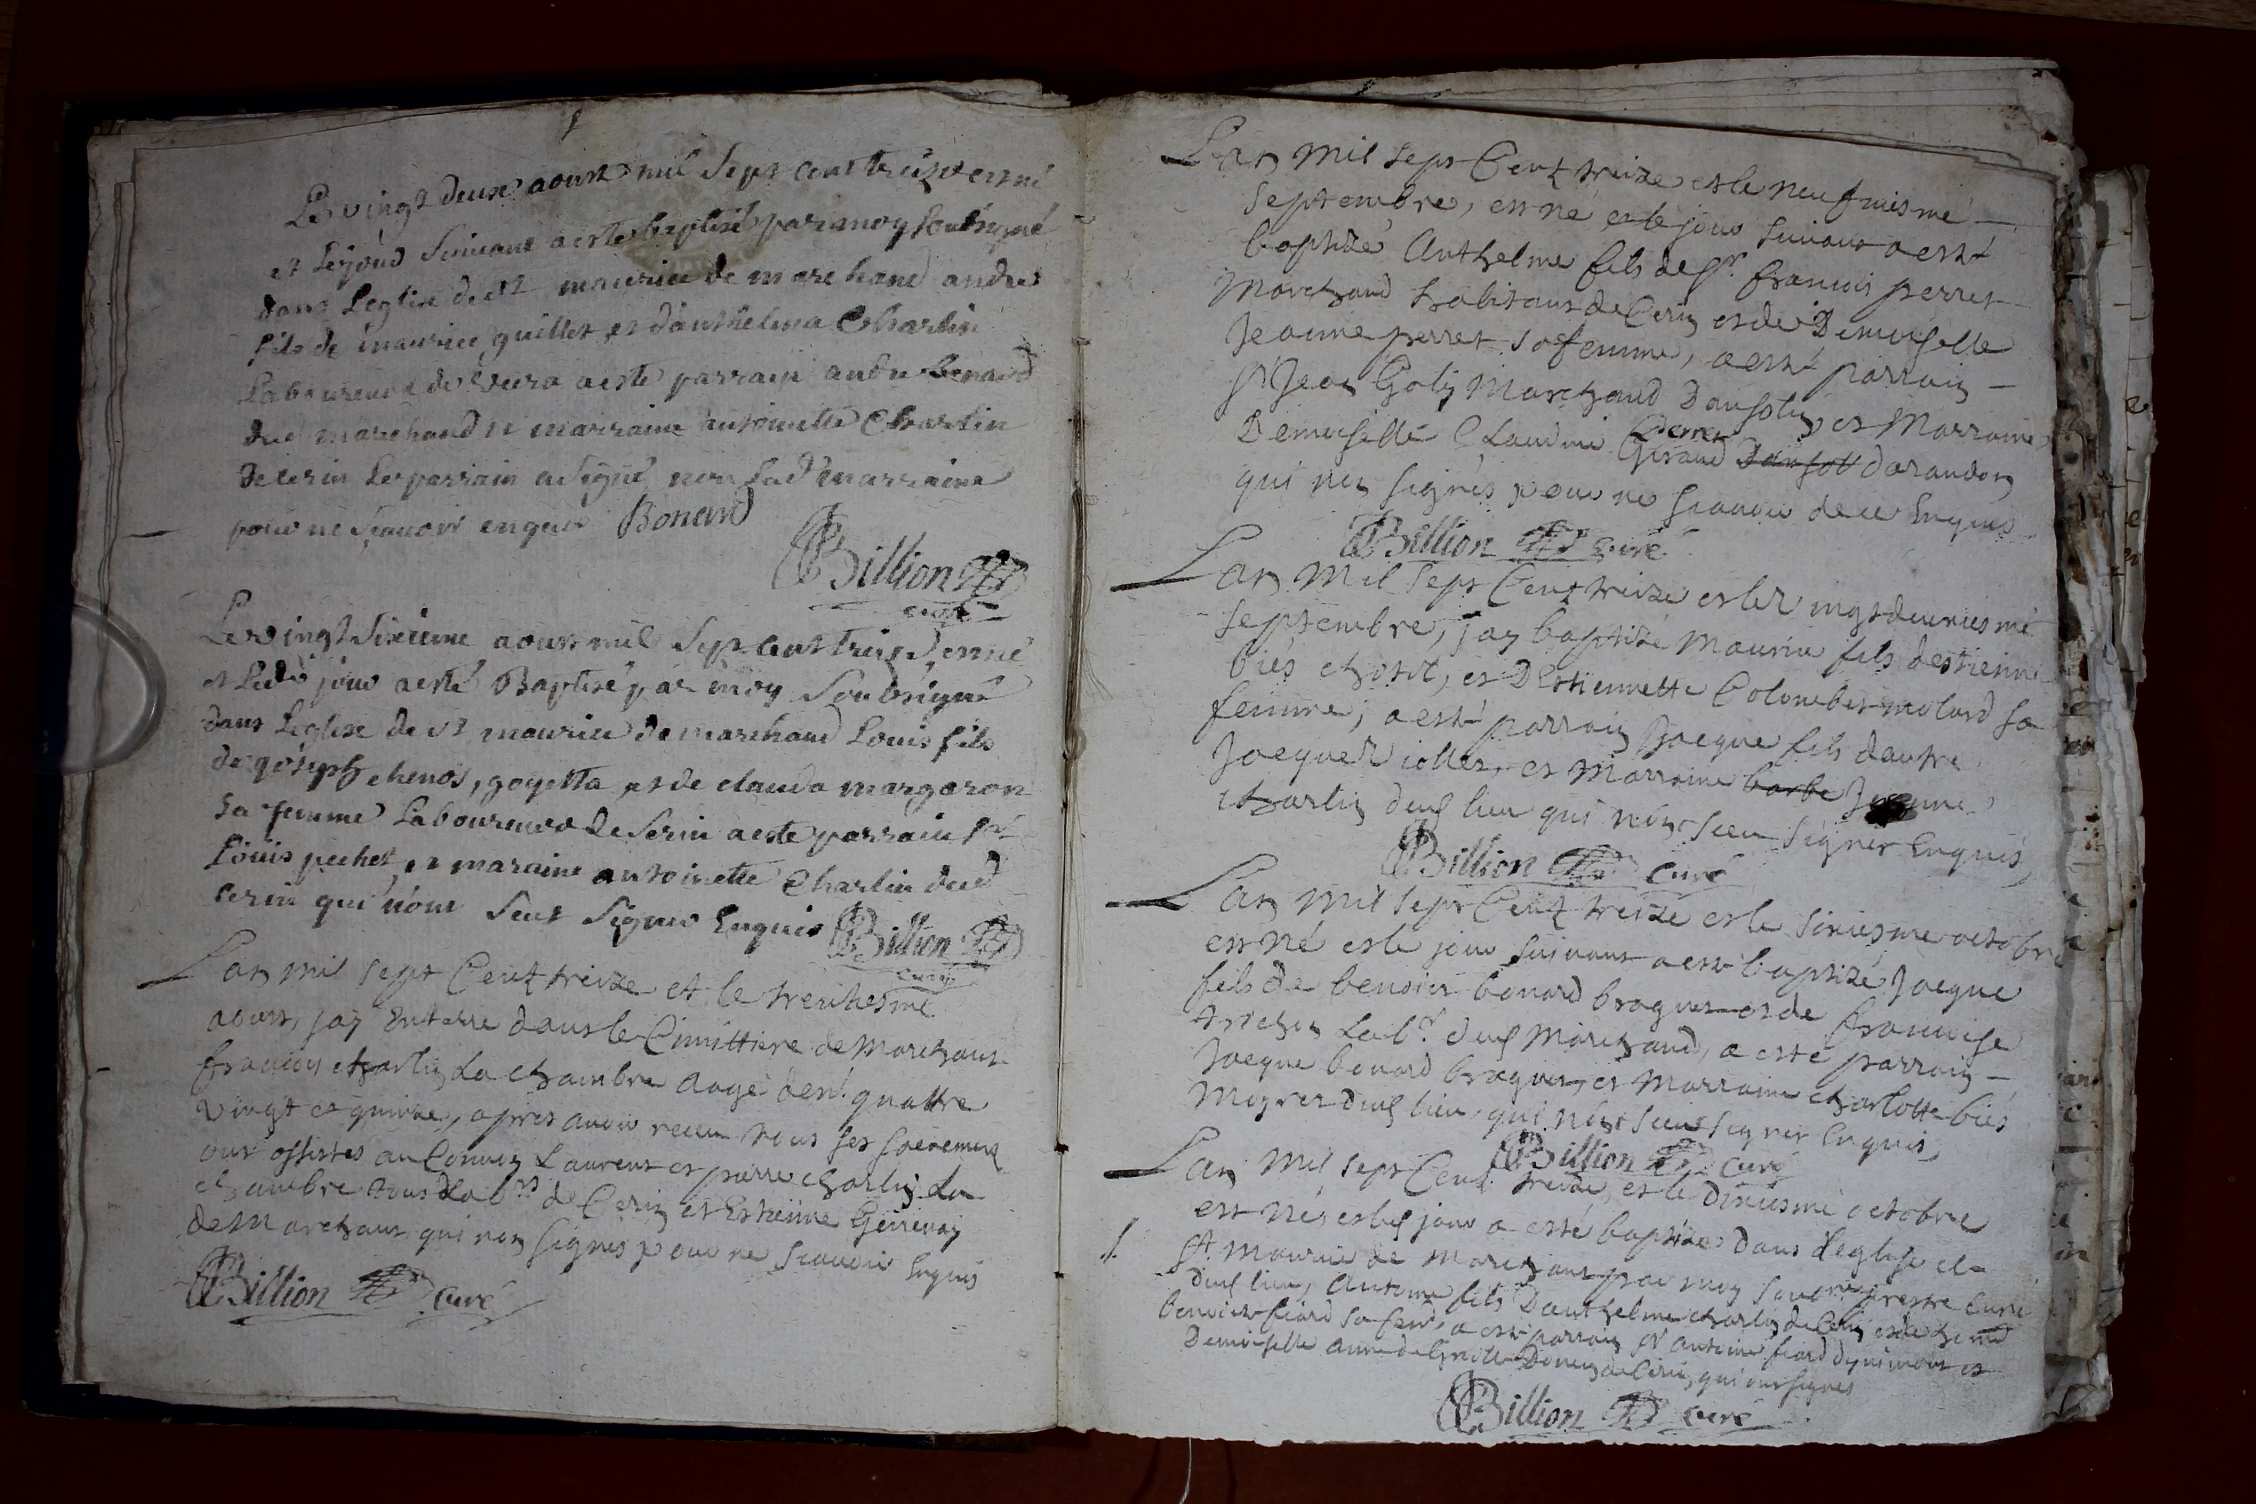 Le vingt deux aoust mil Sept cent treize est né
et le jour Suivant a esté baptisé par moy Soubsigné
dans Leglise de st maurice de marchand andre
fils de maurice guillet et d'anthelma Charlin
Laboureurs de a esté parrain andre bonard
dud marchand et marraine antoinette Charlin
de cerin Le parrain a Signé non Lad marraine
pour ne Scavoir enquis Bonard
Billion
curé
Le vingt Sixieme aoust mil Sept cent treize est né
et Led jour a esté Baptisé par moy Soubsigné
dans Leglise de st maurice de marchand Louis fils
de joseph chenos, goyetta et de clauda margaron
Sa femme Laboureurs de Serin a esté parrain sr
Louis pechet et maraine antoinette Charlin dud
cerin qui n'ont Sceut Signer Enquis Billion
curé
Lan mil sept Cent treize et le trentiesme
aoust, jay Enterre dans le Cimittiere de Marchant
francois charlin La chambre aagé denv. quattre
vingt et quinze, apres avoir receu tous ses sacrements
ont assistés au Convoy Laurent et pierre charlin La
chambre tous Labrs de Cerin et Estienne Genevay
de Marchant qui nont signés pour ne scavoir Enquis
Billion curé
Lan mil sept Cent treize et le neufviesme
septembre, est né et le jour suivant a esté
baptizé Anthelme fils de sr. francois perret
Marchand habitant de Cerin et de Demoiselle
Jeanne perret sa femme, a esté parrain
sr Jean Goly Marchand Dansolin et Marraine
Demoiselle Claudine Giraud Perret Dansol darandon
qui non signés pour ne scavoir de ce Enquis
Billion curé
Lan mil sept Cent treize et le vingtdeuxiesme
septembre, jay baptizé Maurice fils destienne
biés chosit, et Destiennette Colombet molard sa
femme, a esté parrain Jacque fils dautre
Jacque iollet, et Marraine barbe Jeanne
charlin dud lieu qui n'ont sceu signer Enquis
Billion curé
Lan mil sept Cent treize et le sixiesme octobre
est né et le jour suivant a esté baptizé Jacque
fils de benoist bonard braguet et de francoise
trichon Labr. dud Marchand, a esté parrain
Jacque bonard braguet, et Marraine charlotte biés
Mognet dud lieu qui n'ont sceut signer Enquis,
Billion curé
Lan mil sept Cent treize, et le dixiesme octobre
est né et led jour a esté baptizé dans leglise de
st Maurice de Marchant par moy soubné prestre Curé
dud lieu, Antoine fils Danthelme charlin de Cerin et de
benoiste fiard sa fem, a esté parrain sr Antoine fiard dynimont et
Demoiselle Anne de de Cerin, qui ont signés
Billion curé